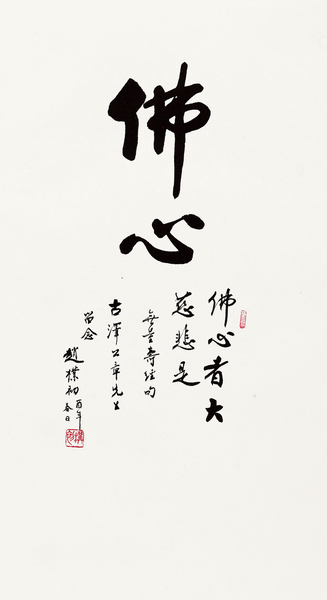 佛心
佛心者大
慈悲是
無量壽經句
古澤公章先生
留念
趙樸初
酉年
春日